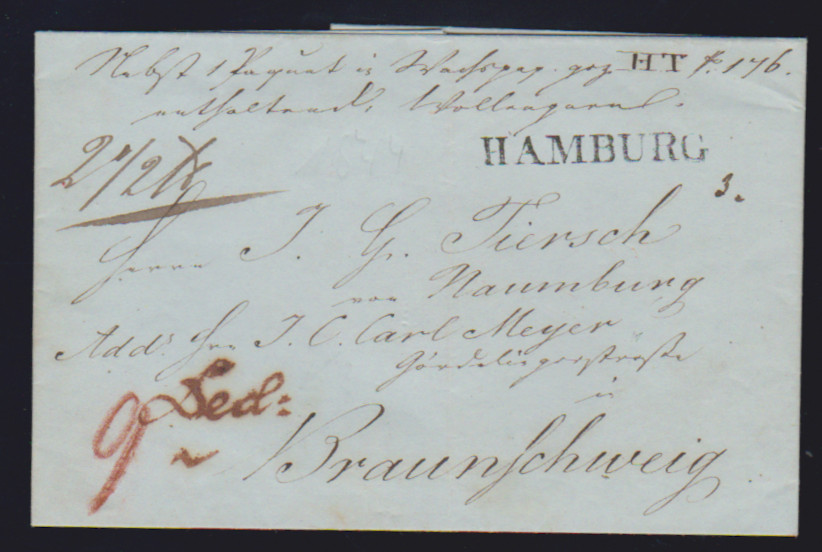 Nebst 1 Paquet in Wachspap. gez. HT No. 176.
enthaltend: Wollengarn.
HAMBURG
2 1/2 ℔
3.
Herrn J. G. Tiersch
von Naumburg
Addr. Hrn J. C. Carl Meyer
Gördelingerstraße
in
Braunschweig
9